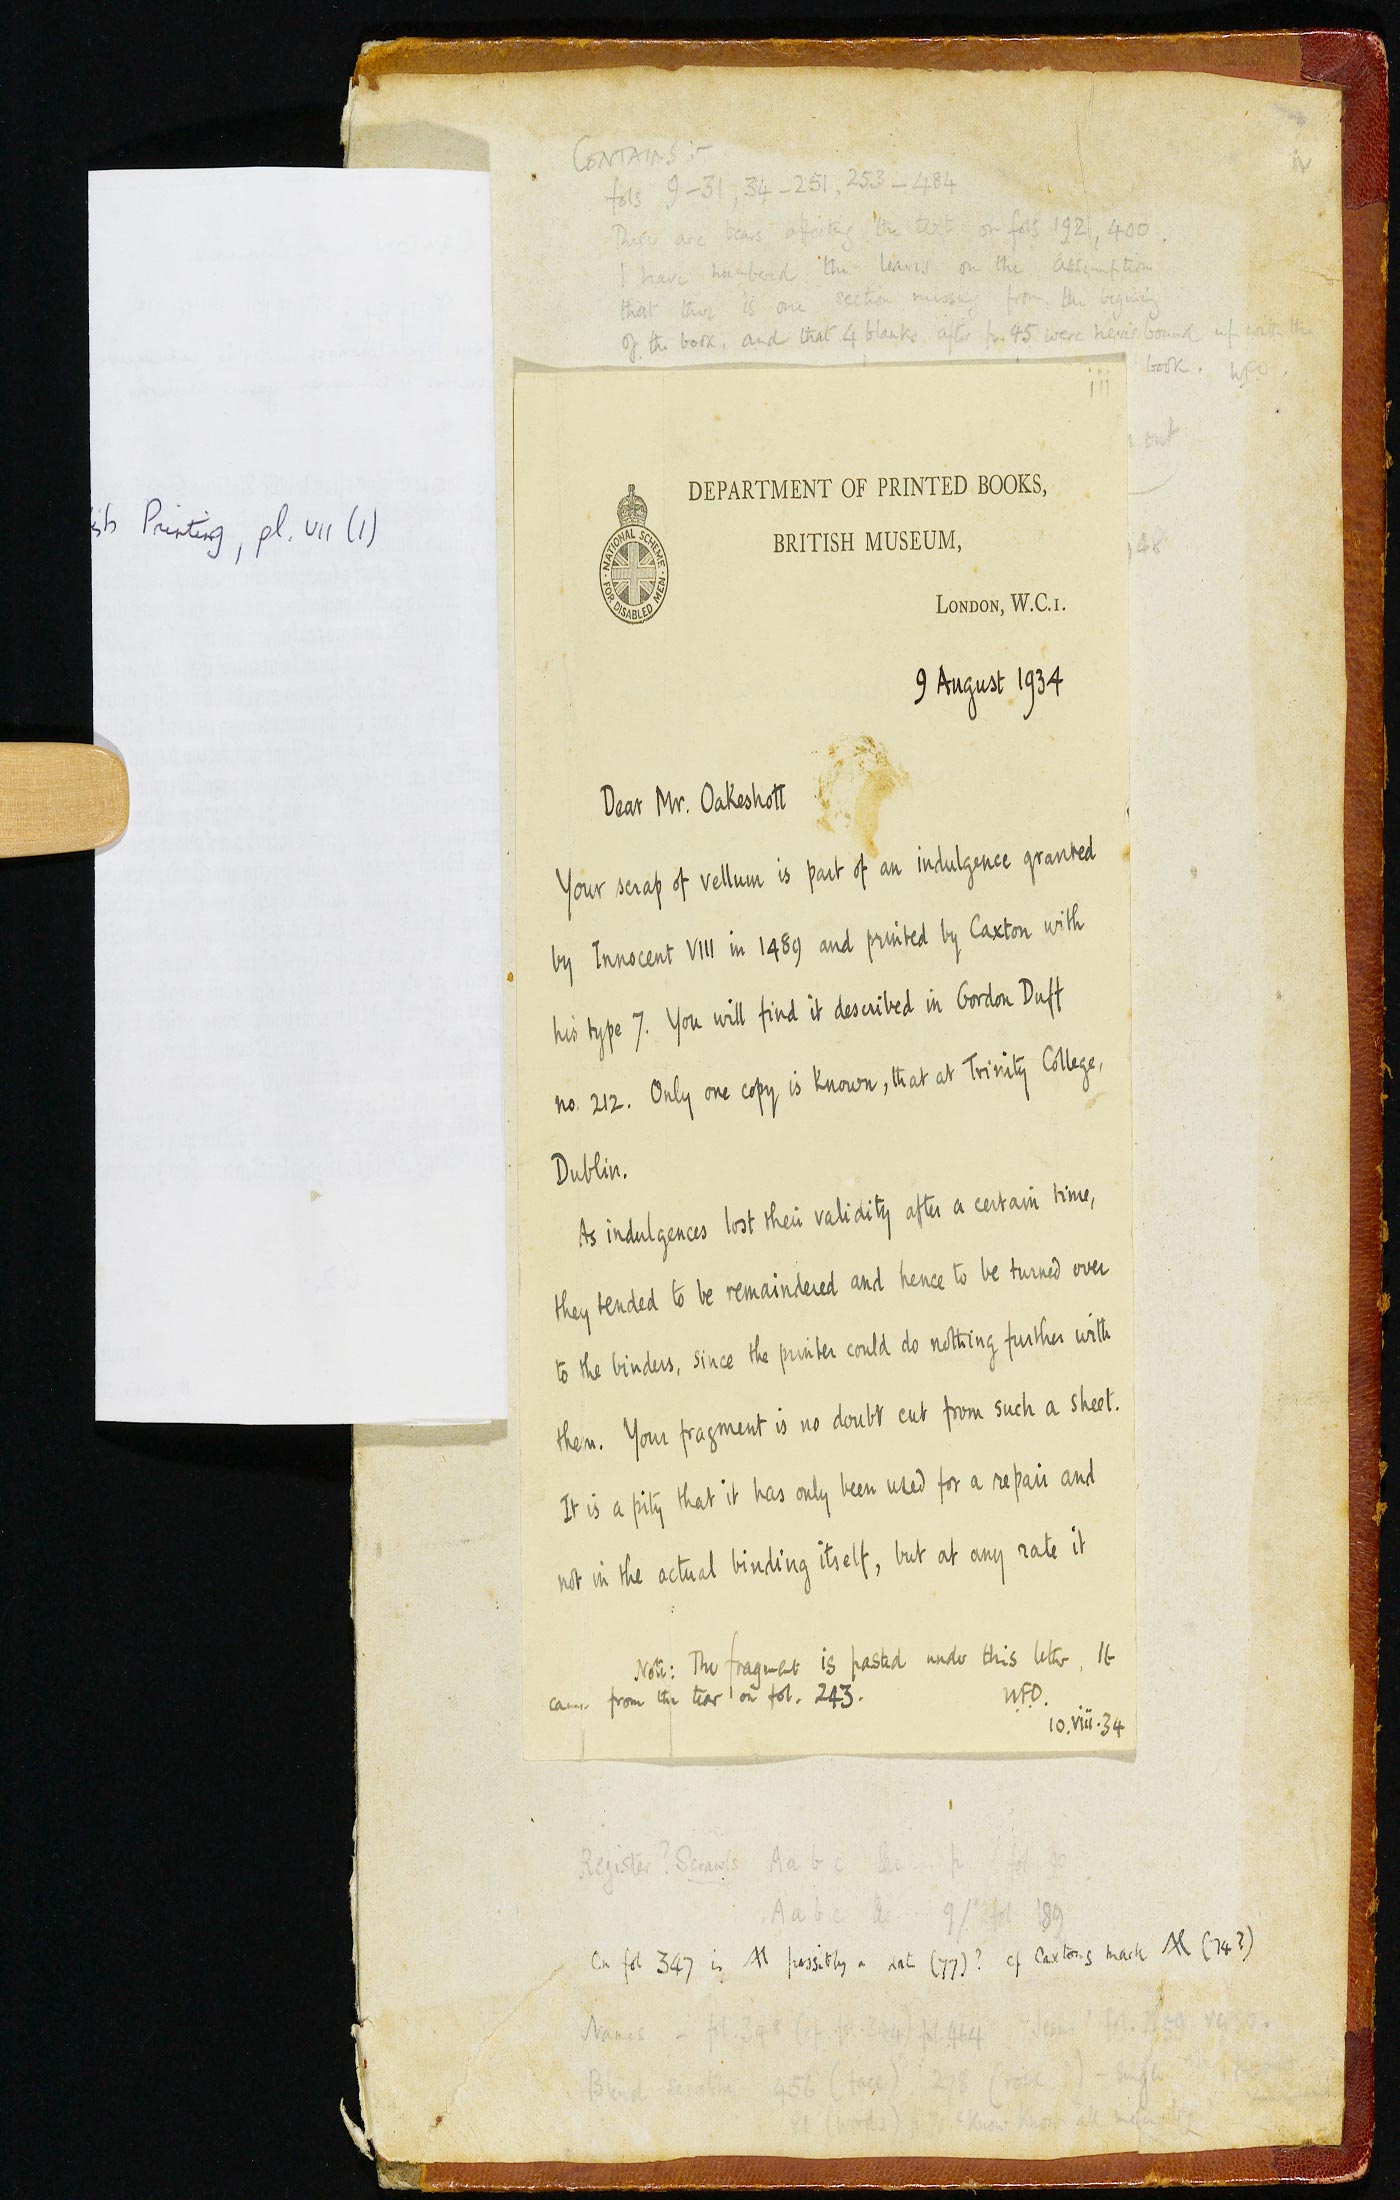 CONTAINS :-
iv
fols 9-31, 34-251, 253-484
There are tears affecting the text on fols 192, 400.
I have numbered the leaves on the assumption
that there is one section missing from the begining
of the book, and that 4 blanks after p. 45 were never bound up with the
book. WFO.
iii
out
48
ish Printing, pl. VII (1)
DEPARTMENT OF PRINTED BOOKS,
BRITISH MUSEUM,
LONDON, W.C.1.
NATIONAL SCHEME
FOR DISABLED MEN
9 August 1934
Dear Mr. Oakeshott
Your scrap of vellum is part of an indulgence granted
by Innocent VIII in 1489 and printed by Caxton with
his type 7. You will find it described in Gordon Duff
no. 212. Only one copy is known, that at Trinity College,
Dublin.
As indulgences lost their validity after a certain time,
they tended to be remaindered and hence to be turned over
to the binders, since the printer could do nothing further with
them. Your fragment is no doubt cut from such a sheet.
It is a pity that it has only been used for a repair and
not in the actual binding itself, but at any rate it
Note: The fragment is pasted under this letter. It
came from the tear on fol. 243. WFO.
10.viii.34
Register? Scrawls A a b c &c ... p / fol
A a b c &c ... 9/ fol 189
On fol 347 is possibly a date (77)? cf Caxtons mark (74?)
Names - fol. 348 fol. 464 "Jesus" fol. verso.
Blind scribbles 456 (face) 278 - single
(words) "Know Know all men